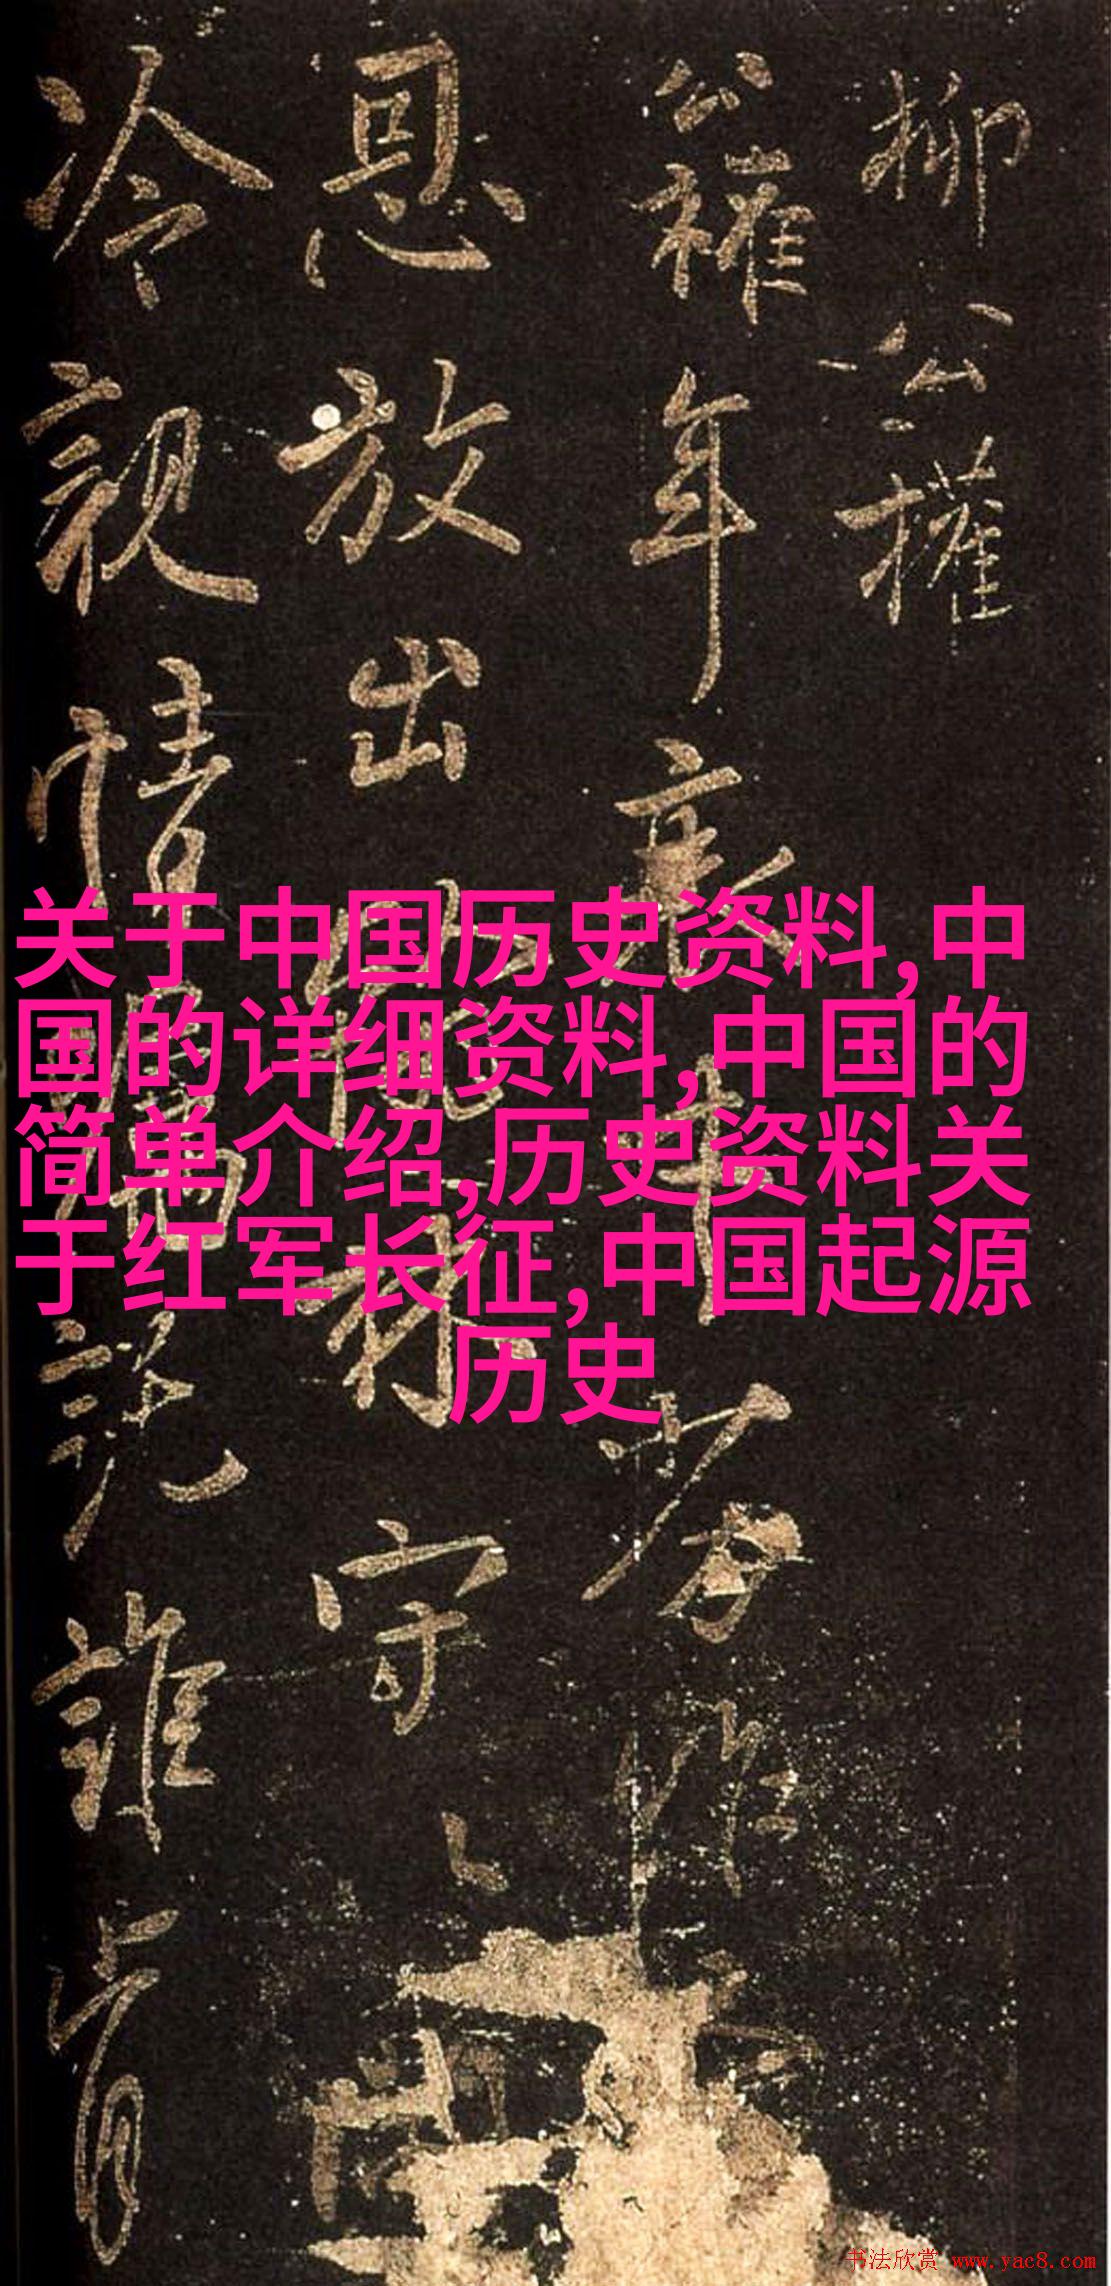 柳公權
公權年衰才劣昨
恩放出
守
冷親情嘱託誰肯
关于中国历史资料,中
国的详细资料,中国的
简单介绍,历史资料关
于红军长征,中国起源
历史
书法欣赏 www.yac8.com